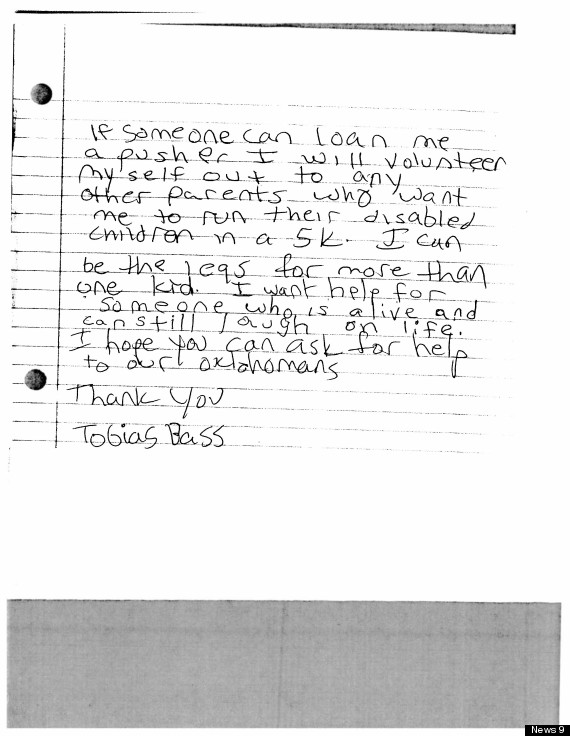 If someone can loan me
a pusher I will volunteer
myself out to any
other parents who want
me to run their disabled
children in a 5K. I can
be the legs for more than
one kid. I want help for
someone who is alive and
can still laugh on life.
I hope you can ask for help
to our oklahomans
Thank You
Tobias Bass
News 9